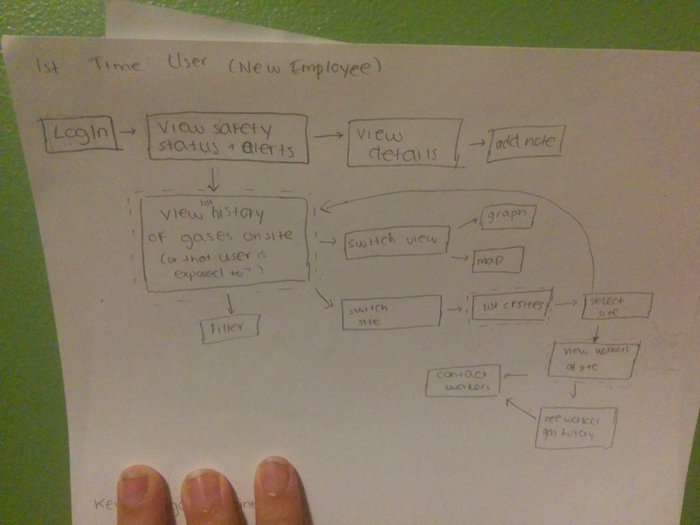 1st Time User (New Employee)
LogIn
view safety
status + alerts
view
details
add note
view list history
of gases onsite
(or that user is
exposed to?)
switch view
graph
map
filter
switch
site
list of sites
select
site
view workers
at site
contact
workers
see worker
gas history